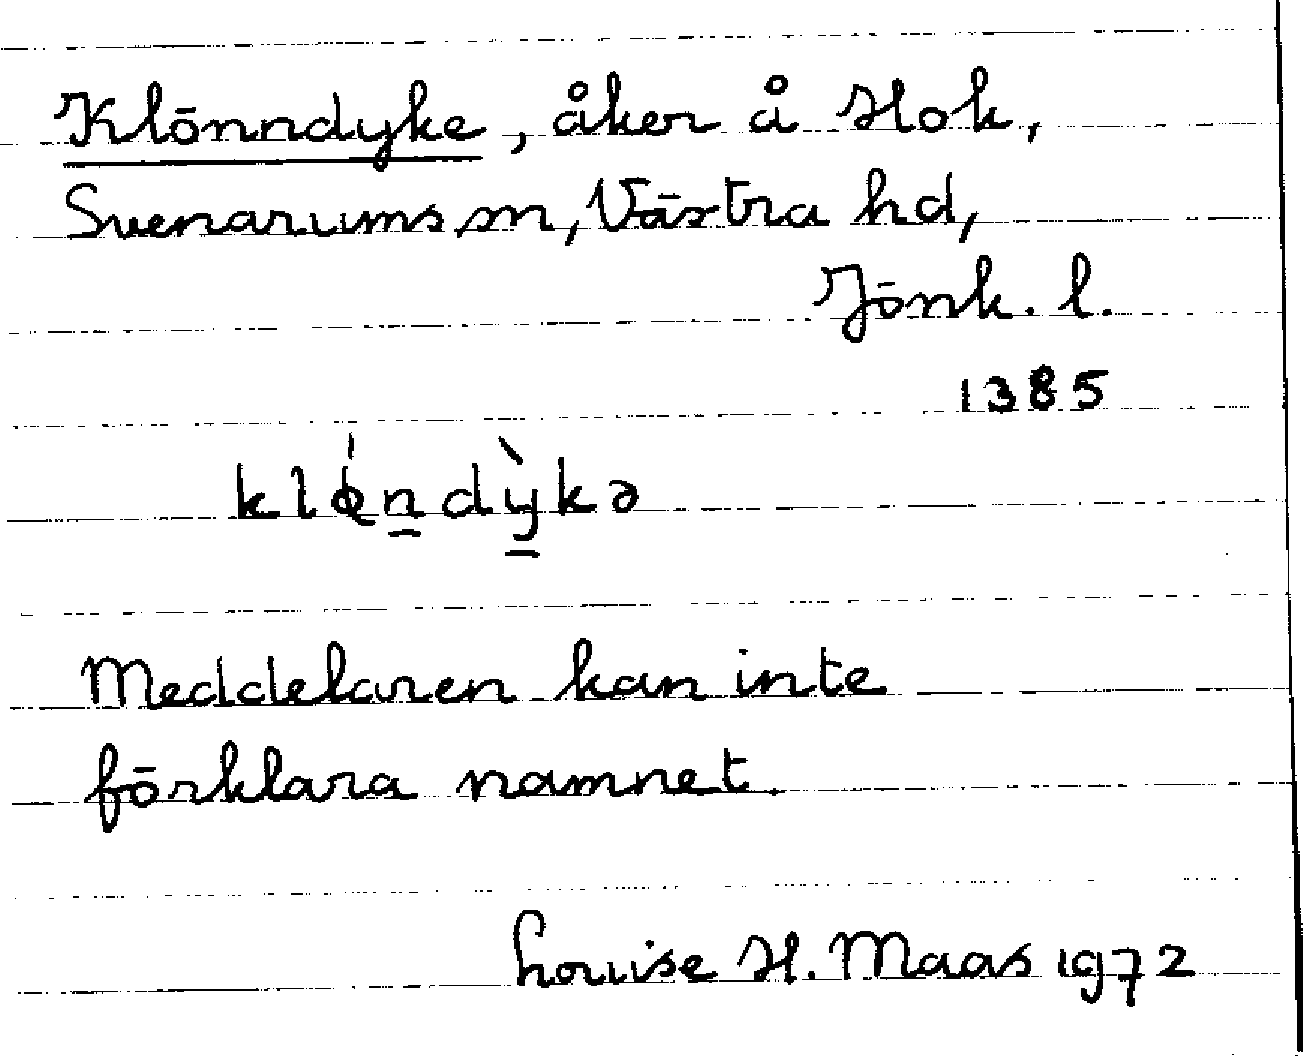 Klönndyke, åker å Hok,
Svenarums sn, Västra hd,
Jönk. l.
1385
klǿn̠dỳ̠kə
Meddelaren kan inte
förklara namnet.
Louise H. Maas 1972